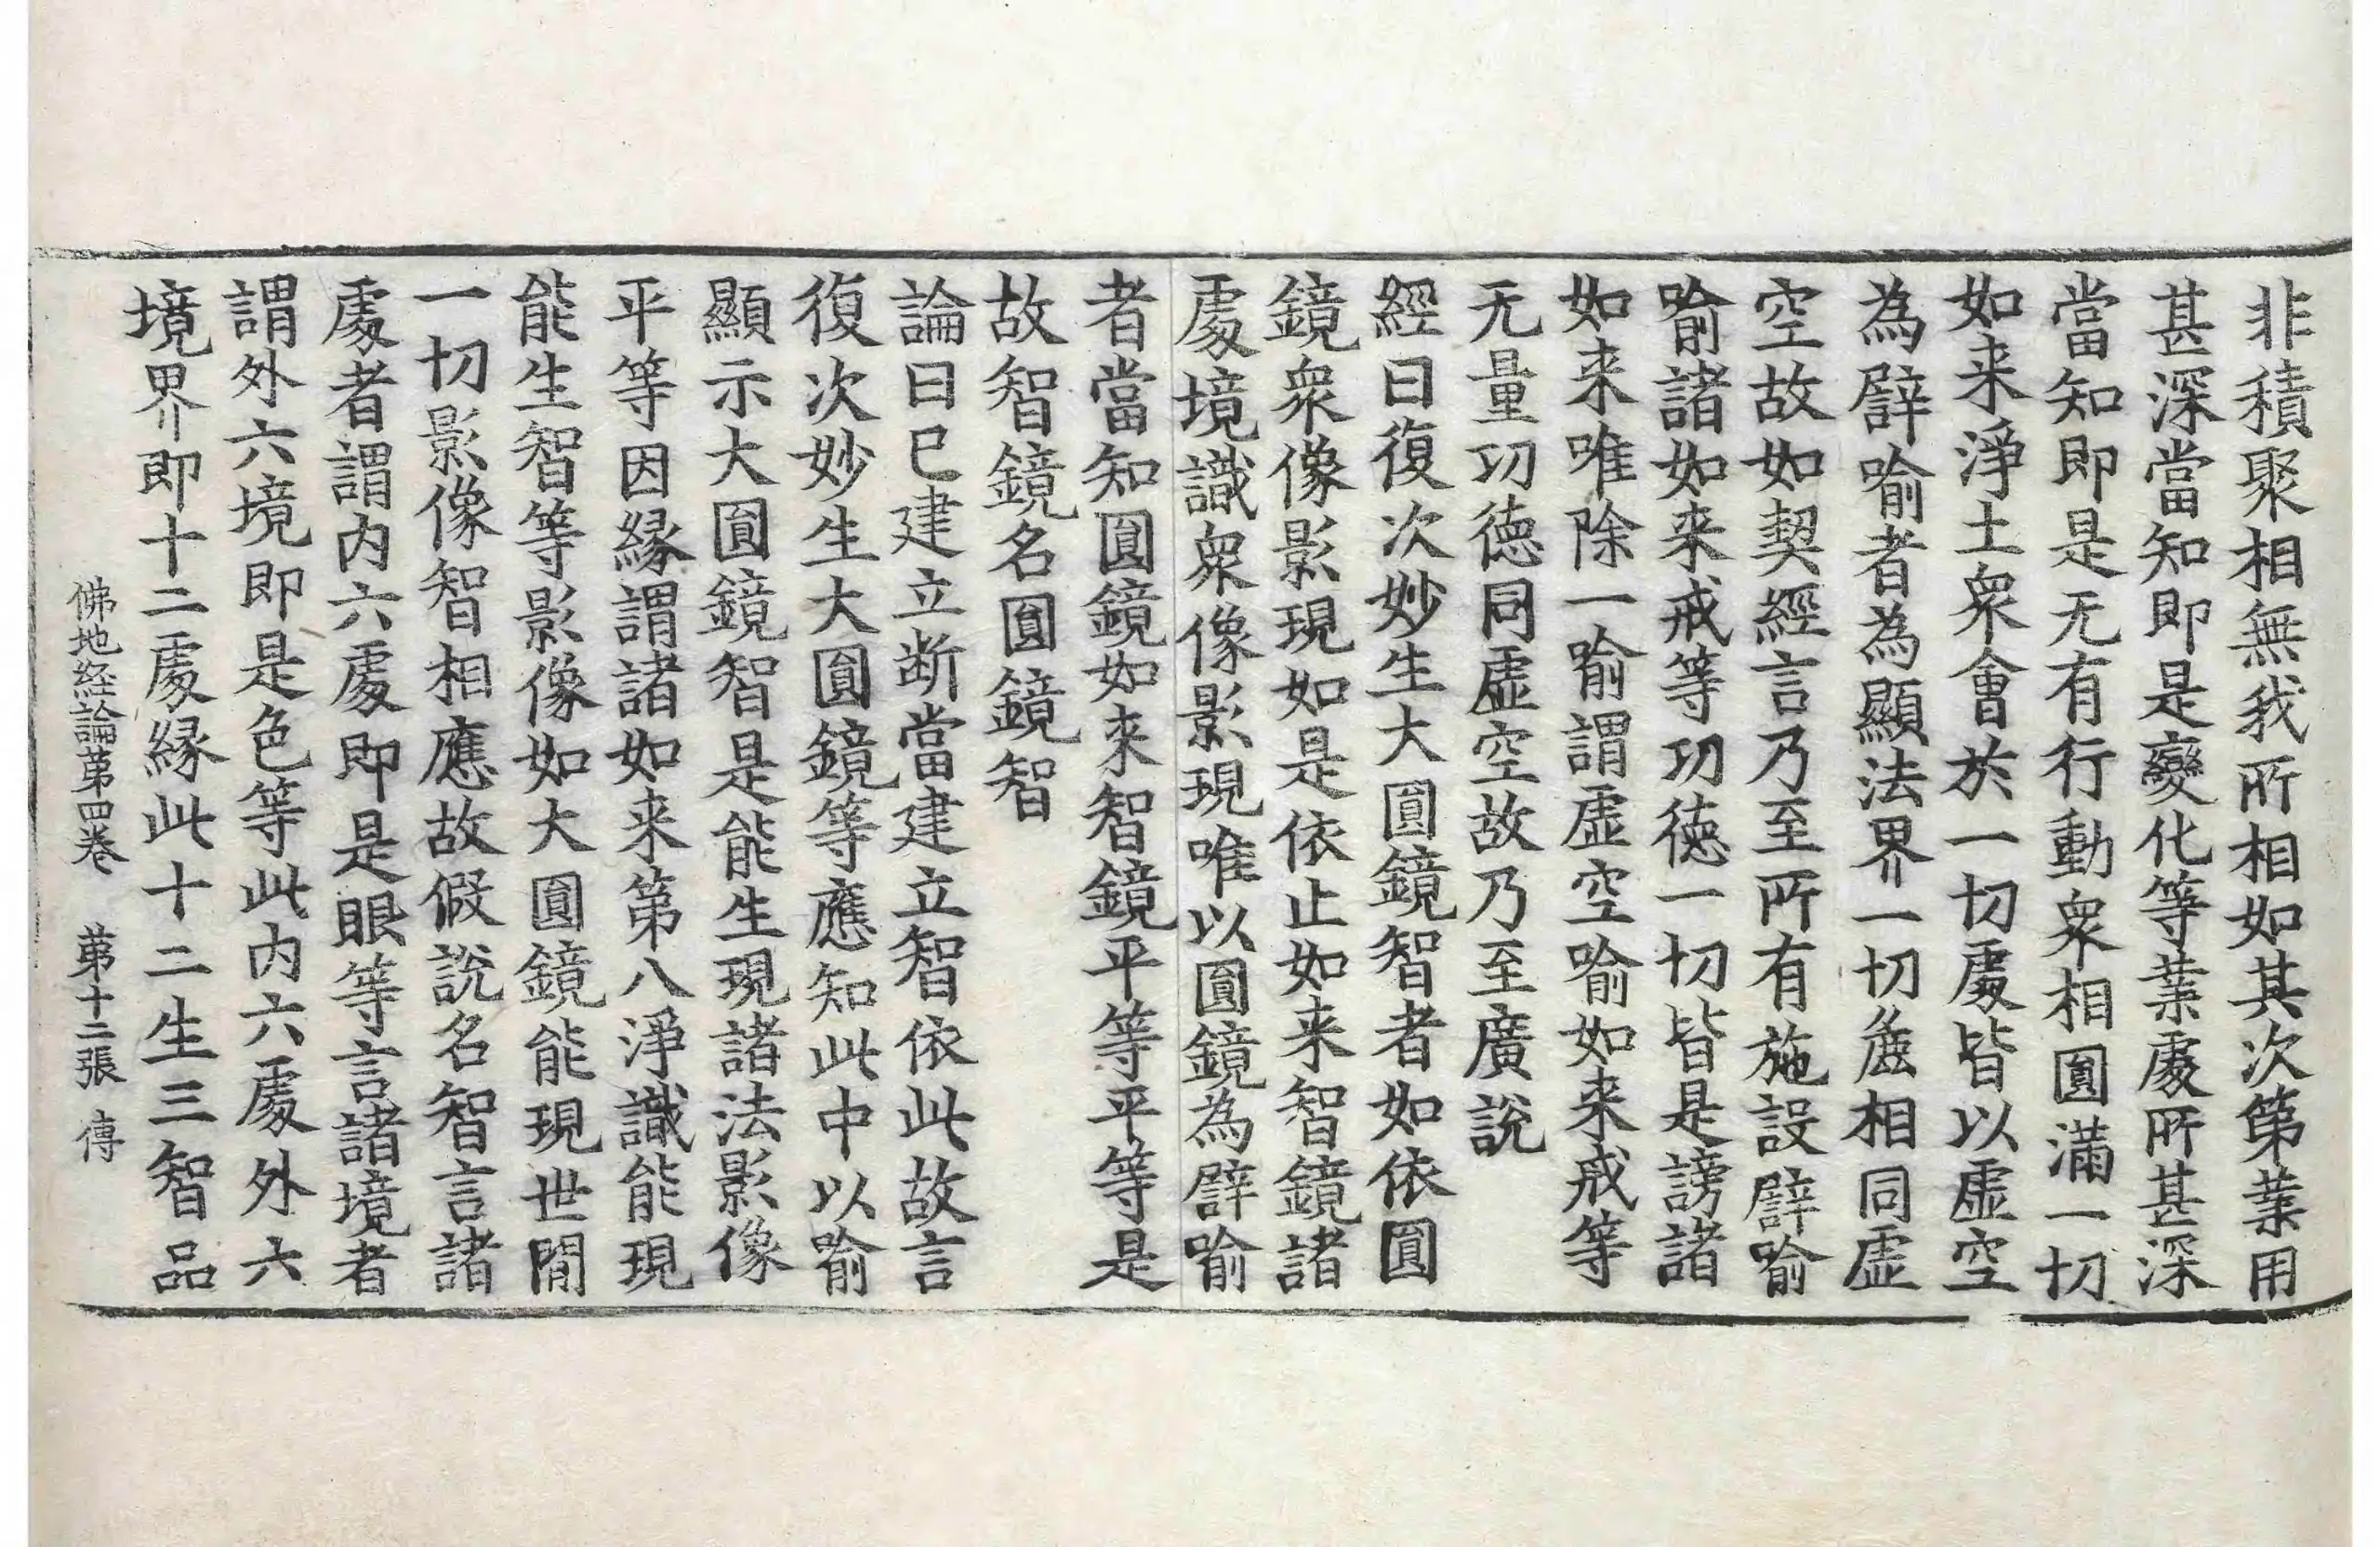 非積聚相無我所相如其次第業用
甚深當知即是變化等業處所甚深
當知即是无有行動衆相圓滿一切
如来淨土衆會於一切處皆以虛空
為譬喻者為顯法界一切麁相同虛
空故如契經言乃至所有施設譬喻
喻諸如来戒等功徳一切皆是謗諸
如来唯除一喻謂虛空喻如来戒等
无量功徳同虛空故乃至廣說
經曰復次妙生大圓鏡智者如依圓
鏡衆像影現如是依止如来智鏡諸
處境識衆像影現唯以圓鏡為譬喻
者當知圓鏡如来智鏡平等平等是
故智鏡名圓鏡智
論曰已建立断當建立智依此故言
復次妙生大圓鏡等應知此中以喻
顯示大圓鏡智是能生現諸法影像
平等因縁謂諸如来第八淨識能現
能生智等影像如大圓鏡能現世間
一切影像智相應故假說名智言諸
處者謂内六處即是眼等言諸境者
謂外六境即是色等此内六處外六
境界即十二處縁此十二生三智品
佛地経論第四卷　第十二張　傳